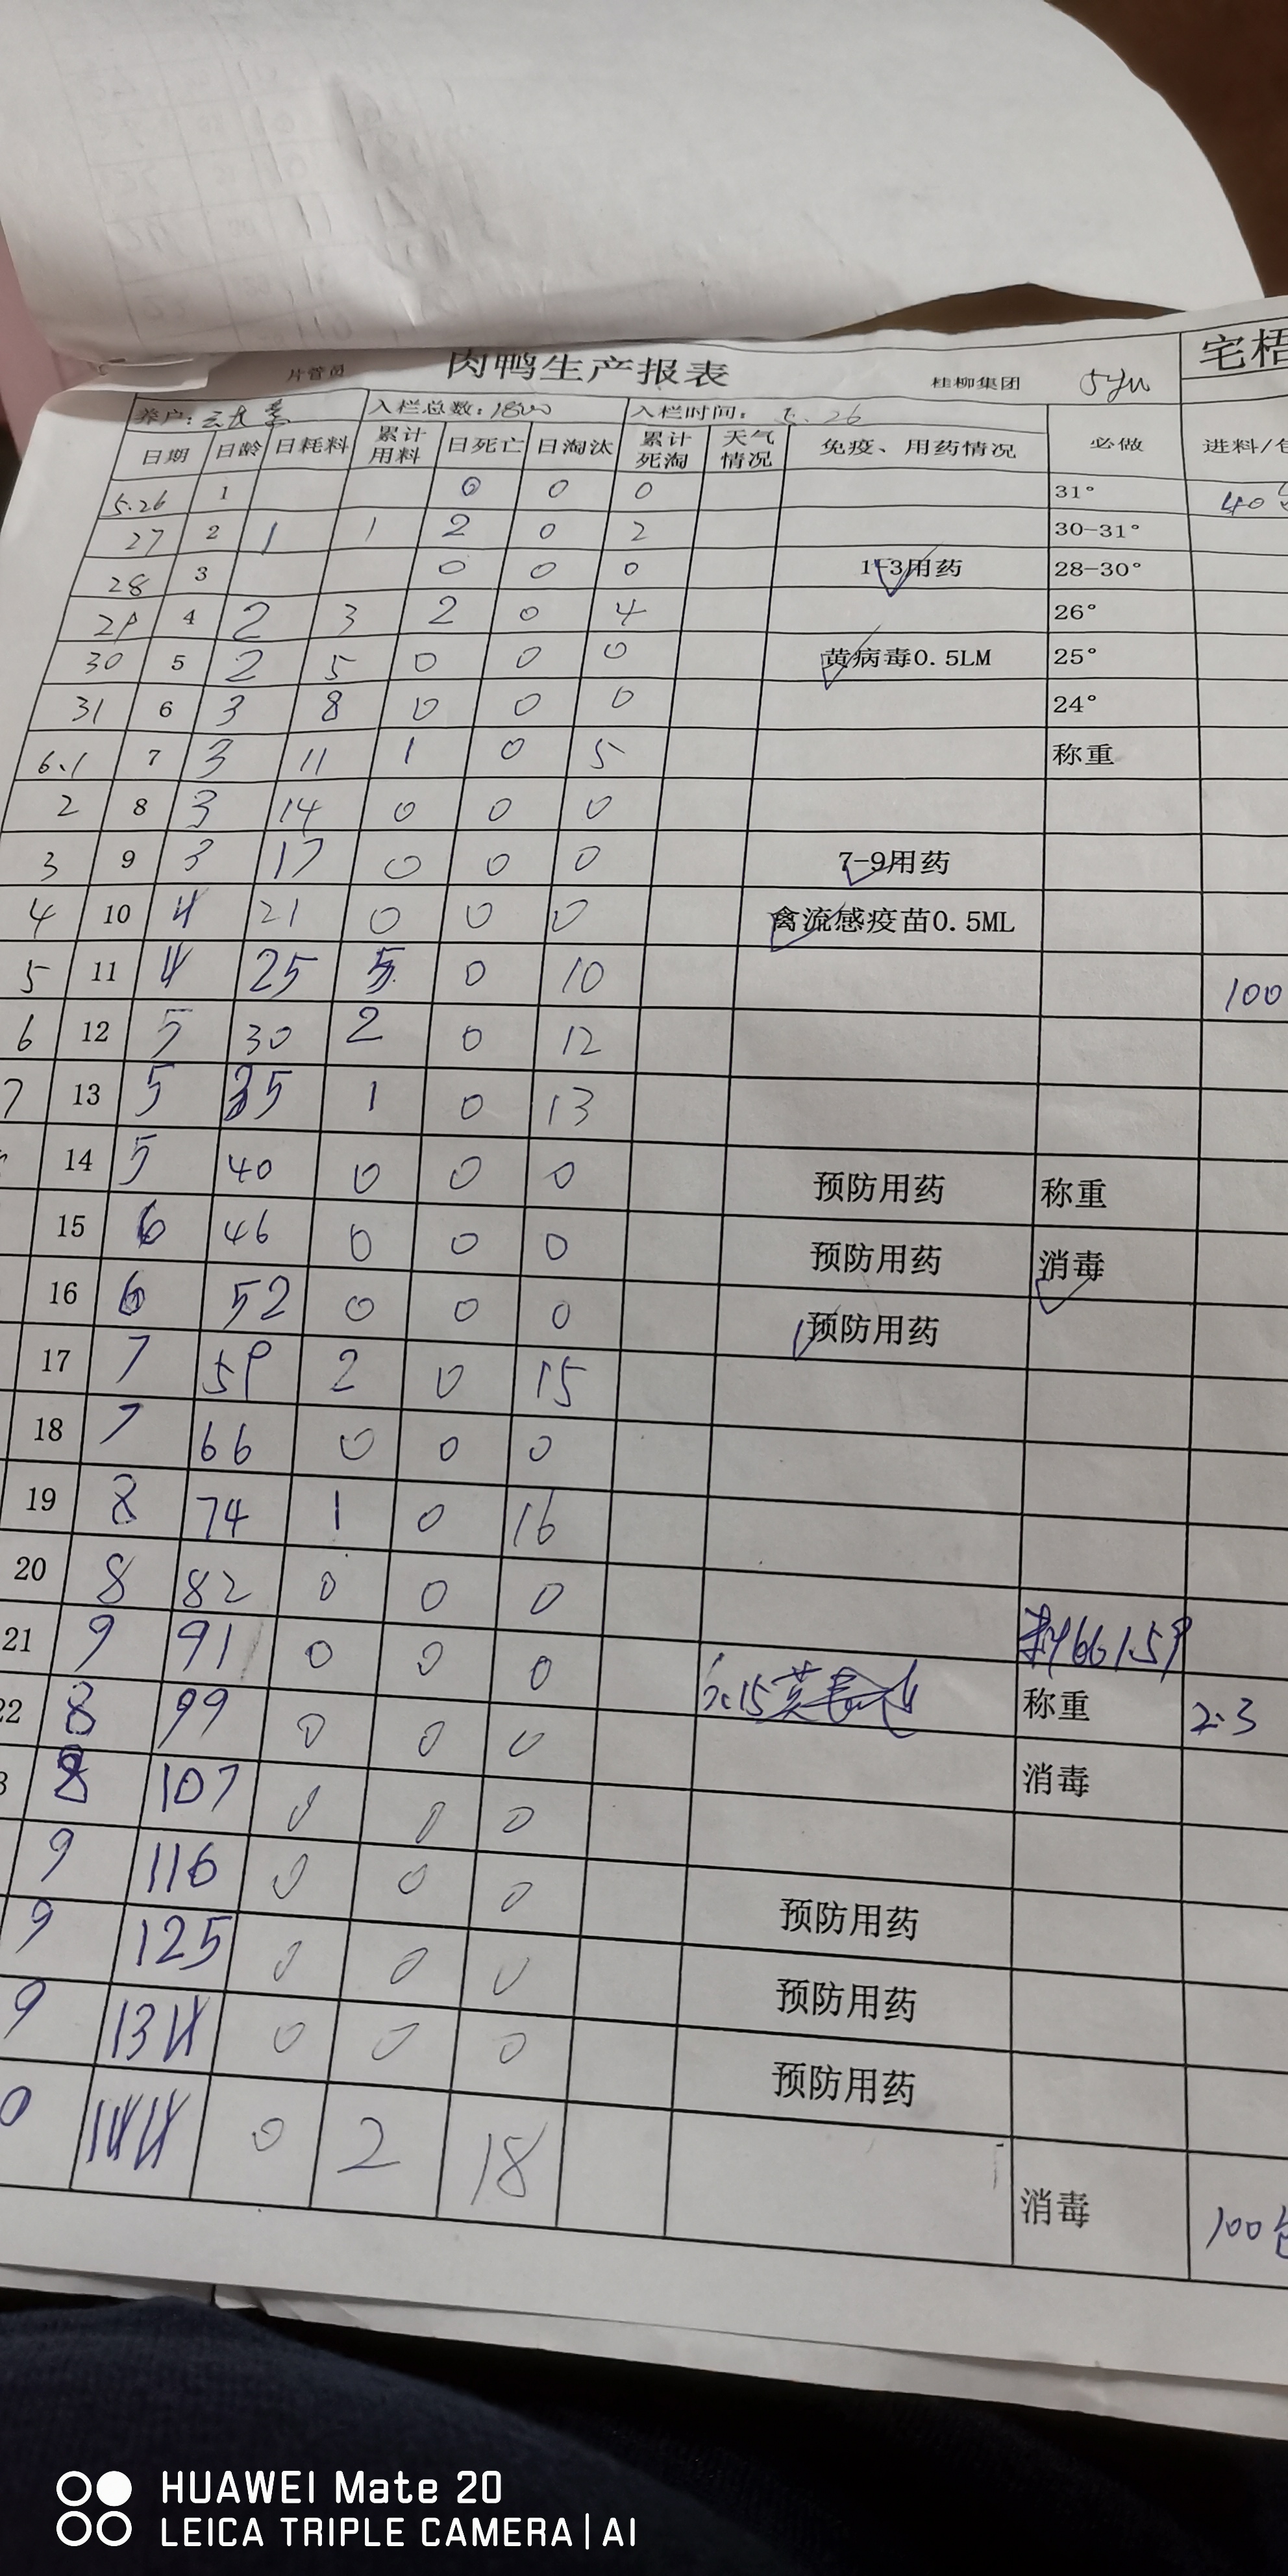 宅梧
片管员 肉鸭生产报表 桂柳集团
养户: 入栏总数: 1800 入栏时间: 5.26
日期 日龄 日耗料 累计用料 日死亡 日淘汰 累计死淘 天气情况 免疫、用药情况 必做 进料/
5.26 1 0 0 0 31° 40
27 2 1 1 2 0 2 30-31°
28 3 0 0 0 1-3用药 28-30°
29 4 2 3 2 0 4 26°
30 5 2 5 0 0 0 黄病毒0.5LM 25°
31 6 3 8 0 0 0 24°
6.1 7 3 11 1 0 5 称重
2 8 3 14 0 0 0
3 9 3 17 0 0 0 7-9用药
4 10 4 21 0 0 0 禽流感疫苗0.5ML
5 11 4 25 5 0 10 100
6 12 5 30 2 0 12
7 13 5 35 1 0 13
14 5 40 0 0 0 预防用药 称重
15 6 46 0 0 0 预防用药 消毒
16 6 52 0 0 0 预防用药
17 7 59 2 0 15
18 7 66 0 0 0
19 8 74 1 0 16
20 8 82 0 0 0
21 9 91 0 0 0 称重 2.3
22 8 99 0 0 0 消毒
8 107 0 0 0
9 116 0 0 0 预防用药
9 125 0 0 0 预防用药
9 134 0 0 0 预防用药
0 144 0 2 18 消毒 100包
HUAWEI Mate 20
LEICA TRIPLE CAMERA | AI